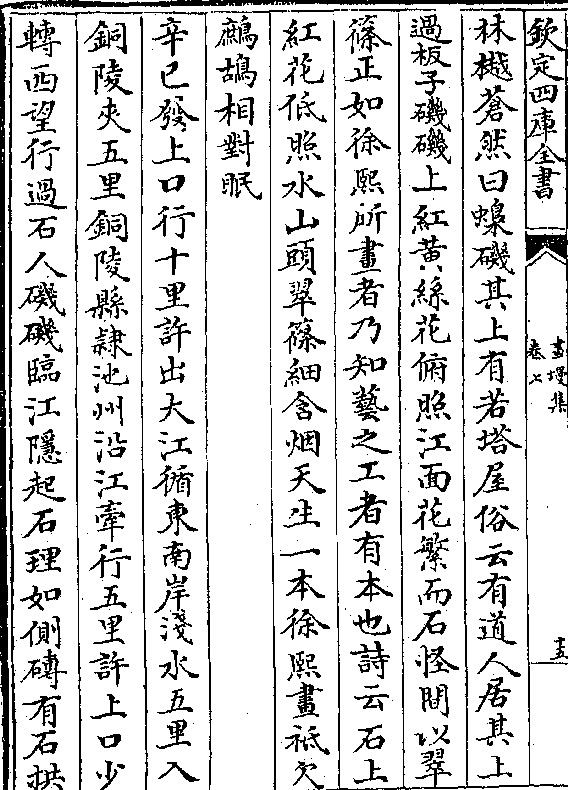 欽定四庫全書
畫墁集
卷七
林樾蒼然曰蟂磯其上有若塔屋俗云有道人居其上
過板子磯磯上紅黃絲花俯照江面花繁而石怪間以翠
篠正如徐熙所畫者乃知藝之工者有本也詩云石上
紅花低照水山頭翠篠細含烟天生一本徐熙畫祗欠
鷓鴣相對眠
辛巳發上口行十里許出大江循東南岸淺水五里入
銅陵夾五里銅陵縣隷池州沿江牽行五里許上口少
轉西望行過石人磯磯臨江隱起石理如側磚有石拱